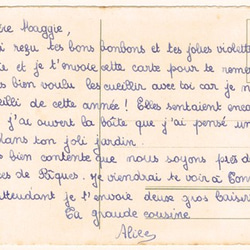 ère Maggie,
i reçu tes bons bonbons et tes jolies violette
ie et je t'envoie cette carte pour te remer
s bien voulu les cueillir avec toi car je n
eilli de cette année! Elles sentaient enco
j'ai ouvert la boîte que j'ai pensé un
dans ton joli jardin.
bien contente que nous soyons près d
es de Pâques. je viendrai te voir à Con
attendant je t'envoie deux gros baiser
Ta grande cousine
Alice